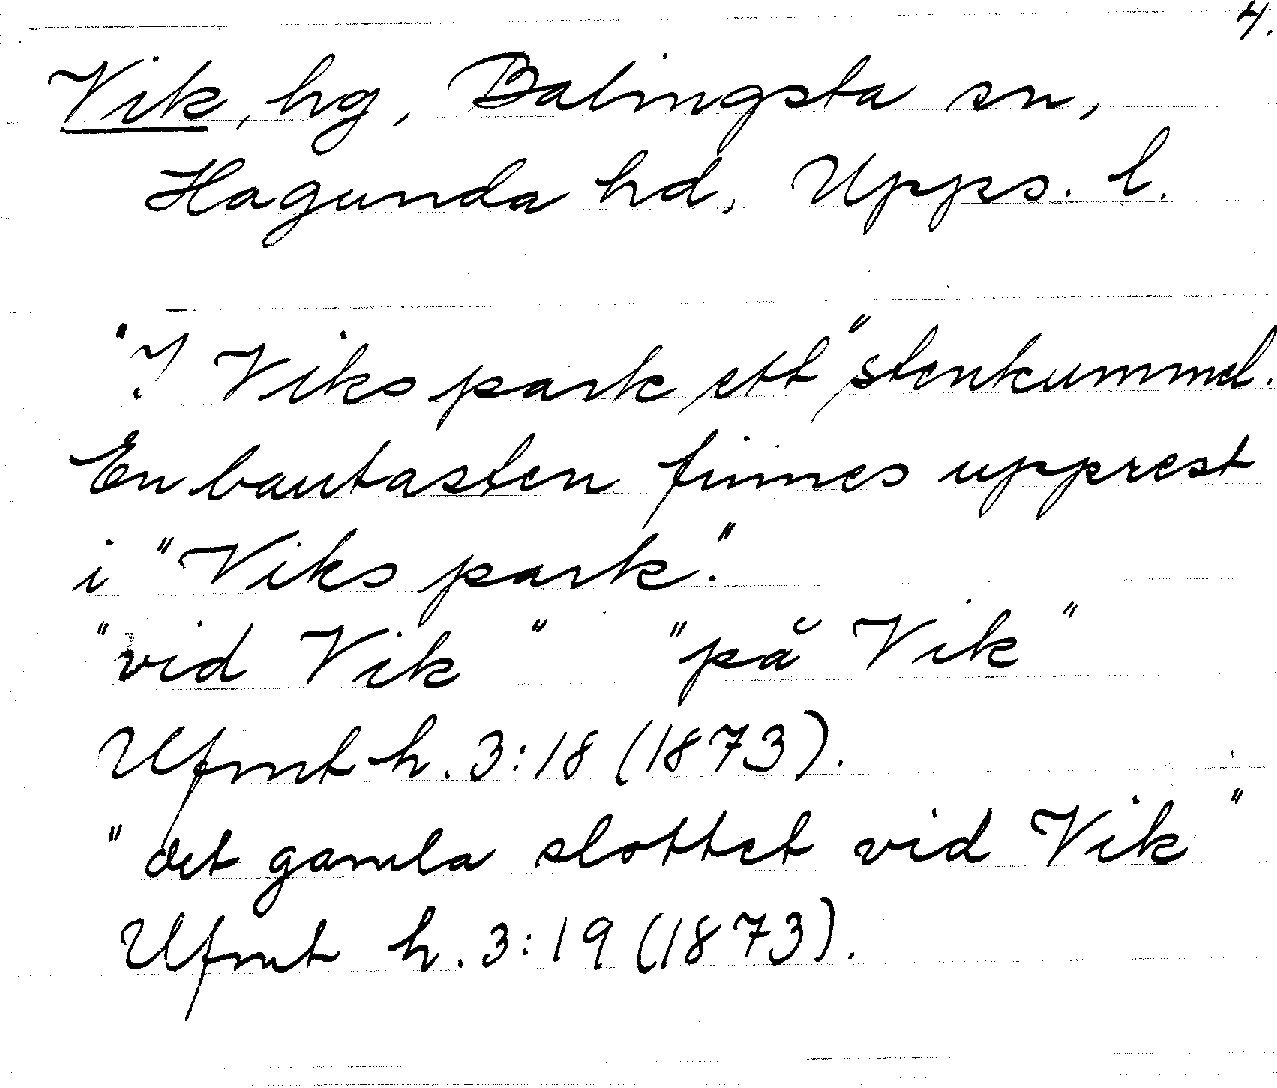 4.
Vik, hg, Balingsta sn,
Hagunda hd, Upps. l.
"I Viks park ett" stenkummel.
En bautasten finnes upprest
i "Viks park."
"vid Vik" "på Vik"
Ufmt h. 3:18 (1873).
"det gamla slottet vid Vik"
Ufmt h. 3:19 (1873).